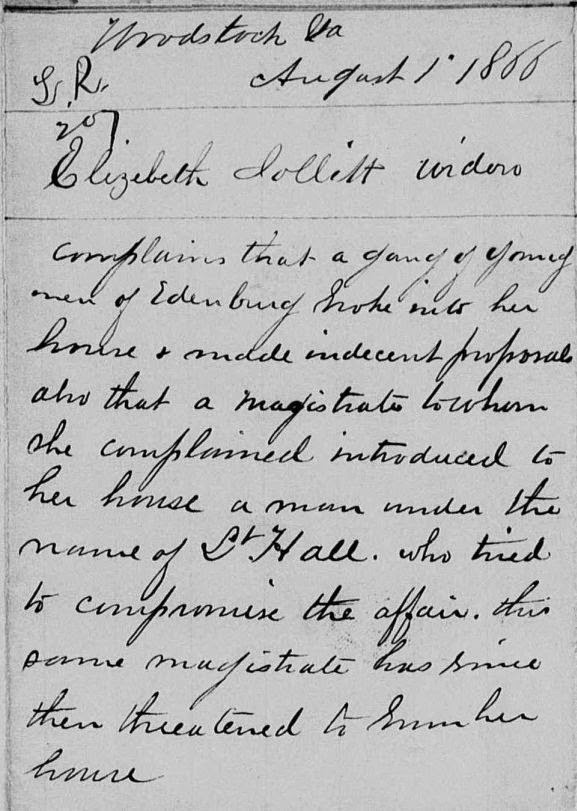 Woodstock Va
August 1st 1866
L.R.
207
Elizebeth Jollitt widow
complains that a gang of young
men of Edenburg broke into her
house & made indecent proposals
also that a magistrate to whom
she complained introduced to
her house a man under the
name of Lt Hall. who tried
to compromise the affair. this
same magistrate has since
then threatened to burn her
house